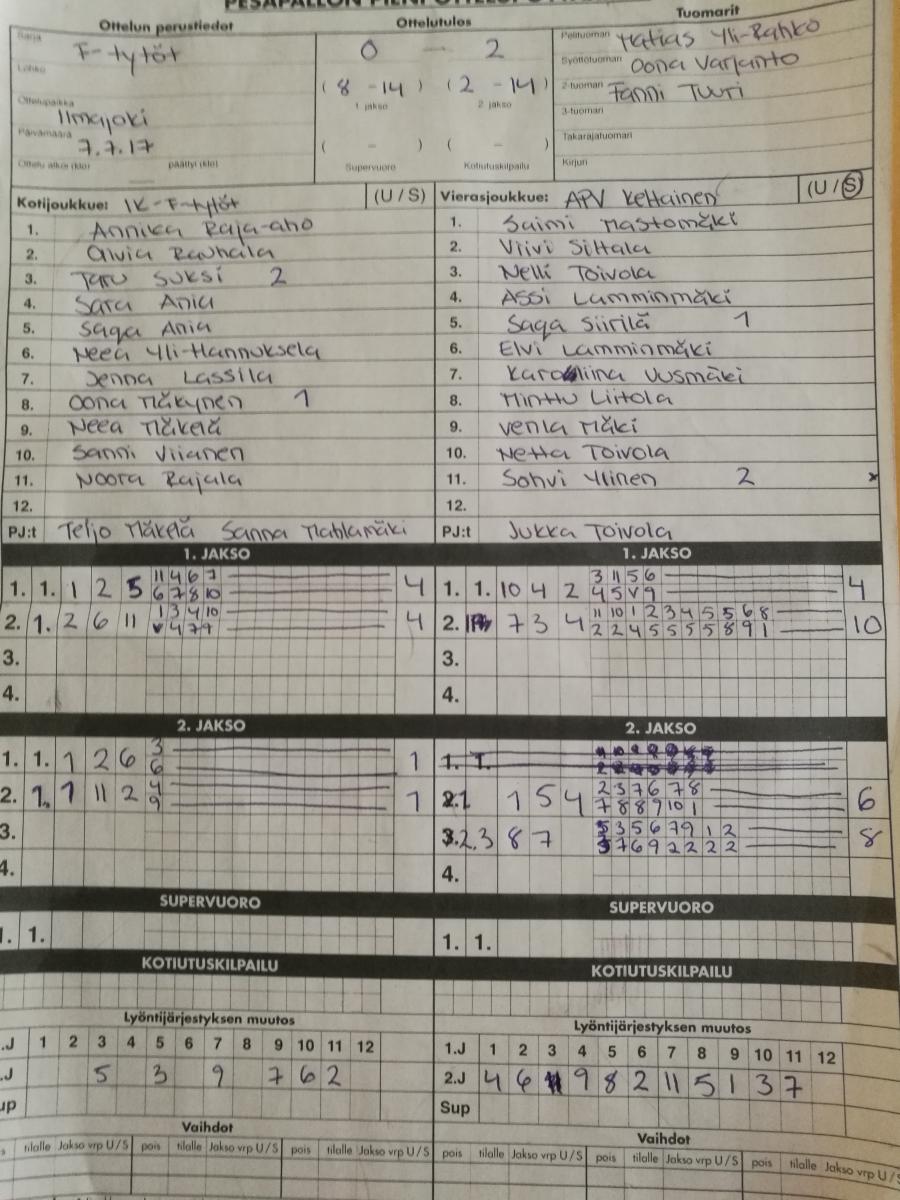 Ottelun perustiedot
Ottelutulos
Tuomarit
Sarja F-tytöt
Lohko
Ottelupaikka Ilmajoki
Päivämäärä 7.7.17
Ottelu alkoi (klo) päättyi (klo)
0 – 2
(8 - 14) (2 - 14)
1 jakso 2 jakso
( - ) ( - )
Supervuoro Kotiutuskilpailu
Pelituomari Matias Yli-Rahko
Syöttötuomari Oona Varjanto
2-tuomari Fanni Tuuri
3-tuomari
Takarajatuomari
Kirjuri
Kotijoukkue: IK-F-tytöt (U / S)
1. Annika Raja-aho
2. Olivia Rauhala
3. Taru Suksi 2
4. Sara Ania
5. Saga Ania
6. Neea Yli-Hannuksela
7. Jenna Lassila
8. Oona Mäkynen 1
9. Neea Mäkelä
10. Sanni Viianen
11. Noora Rajala
12.
PJ:t Teijo Mäkelä Sanna Mahlamäki
Vierasjoukkue: APV Keltainen (U / S)
1. Saimi Mastomäki
2. Viivi Siltala
3. Nelli Toivola
4. Assi Lamminmäki
5. Saga Siirilä 1
6. Elvi Lamminmäki
7. Karoliina Uusmäki
8. Minttu Liitola
9. Venla Mäki
10. Netta Toivola
11. Sohvi Ylinen 2 x
12.
PJ:t Jukka Toivola
1. JAKSO
1. 1. 1 2 5 11 4 6 7 4
6 7 8 10
2. 1. 2 6 11 1 3 4 10 4
v 4 7 9
3.
4.
1. JAKSO
1. 1. 10 4 2 3 11 5 6 4
4 5 v 9
2. 7 3 4 11 10 1 2 3 4 5 5 6 8 10
2 2 4 5 5 5 5 8 9 1
3.
4.
2. JAKSO
1. 1. 1 2 6 3 1
6
2. 1. 1 11 2 4 1
9
3.
4.
2. JAKSO
1. 1.
2.1 1 5 4 2 3 7 6 7 8 6
7 8 8 9 10 1
3.2,3 8 7 5 3 5 6 7 9 1 2 8
3 7 6 9 2 2 2 2
4.
SUPERVUORO
1. 1.
SUPERVUORO
1. 1.
KOTIUTUSKILPAILU
KOTIUTUSKILPAILU
Lyöntijärjestyksen muutos
.J 1 2 3 4 5 6 7 8 9 10 11 12
.J 5 3 9 7 6 2
up
Lyöntijärjestyksen muutos
1.J 1 2 3 4 5 6 7 8 9 10 11 12
2.J 4 6 9 8 2 11 5 1 3 7
Sup
Vaihdot
s tilalle Jakso vrp U / S pois tilalle Jakso vrp U / S pois tilalle Jakso vrp U / S
Vaihdot
pois tilalle Jakso vrp U / S pois tilalle Jakso vrp U / S pois tilalle Jakso vrp U / S